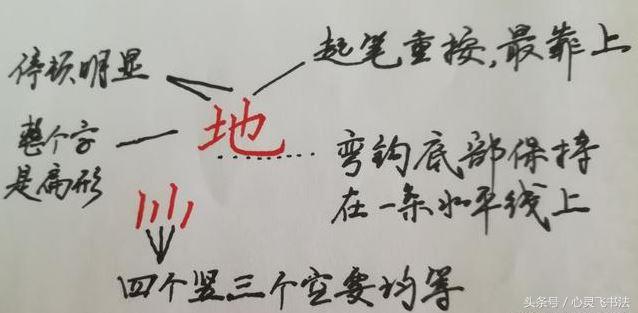 起笔重按,最靠上
停顿明显
地
整个字
是扁形
弯钩底部保持
在一条水平线上
四个竖三个空要均等
头条号 / 心灵飞书法